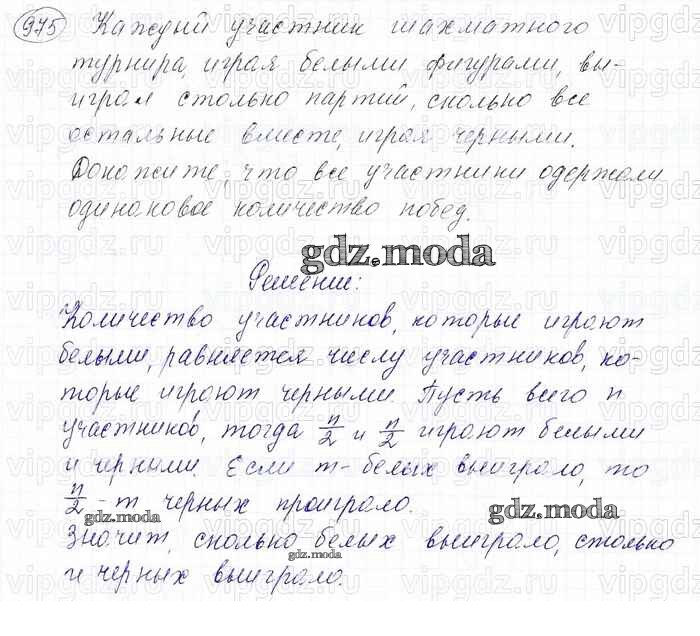 975 Каждый участник шахматного
турнира, играя белыми фигурами, вы-
играл столько партий, сколько все
остальные вместе, играя черными.
Докажите, что все участники одержали
одинаковое количество побед.
gdz.moda
Решение:
Количество участников, которые играют
белыми, равняется числу участников, ко-
торые играют черными. Пусть всего n
участников, тогда n/2 и n/2 играют белыми
и черными. Если m - белых выиграло, то
n/2 - m черных проиграло.
gdz.moda gdz.moda
Значит, сколько белых выиграло, столько
gdz.moda
и черных выиграло.